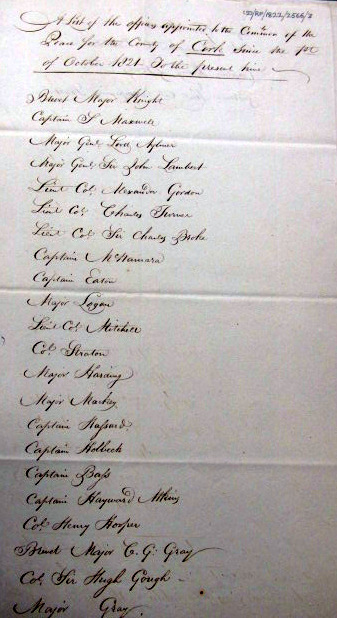 CSO/RP/1822/2566/3
A List of the officers appointed to the Comm.on of the
Peace for the County of Cork since the 1st
of October 1821 To the present time
Brevet Major Knight
Captain S Maxwell
Major Gen.l Lord Aylmer
Major Gen.l Sir John Lambert
Lieut Col. Alexander Gordon
Lieut Col. Charles Turner
Lieut Col. Sir Charles Broke
Captain McNamara
Captain Eaton
Major Logan
Lieut Col. Mitchell
Col. Straton
Major Harding
Major Markey
Captain Hassard
Captain Holbech
Captain Bass
Captain Hayward Atkins
Col. Henry Hooper
Brevet Major C. G. Gray
Col. Sir Hugh Gough
Major Gray